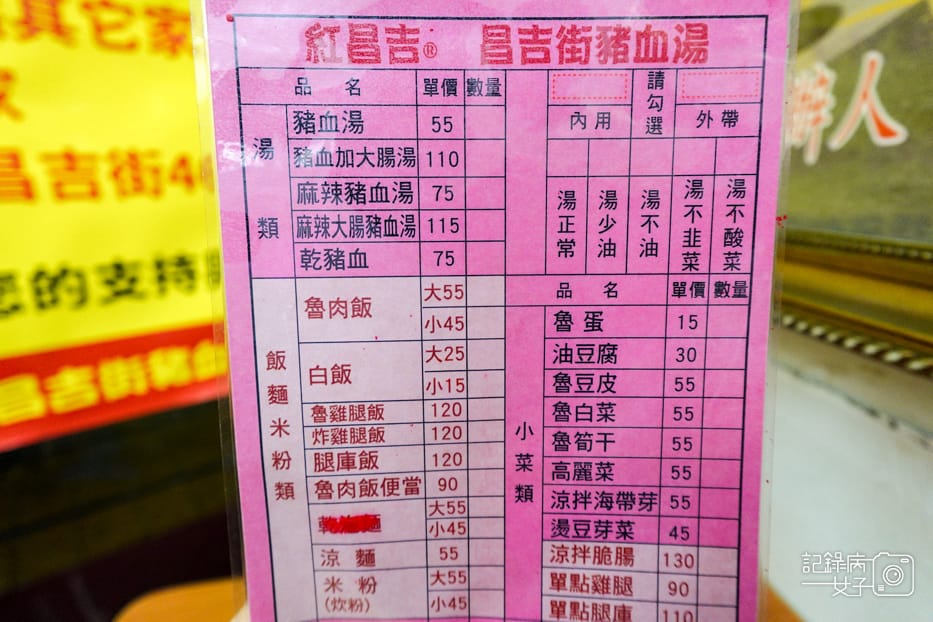 紅昌吉® 昌吉街豬血湯
品名 單價 數量
湯類
豬血湯 55
豬血加大腸湯 110
麻辣豬血湯 75
麻辣大腸豬血湯 115
乾豬血 75
飯麵米粉類
魯肉飯 大55
小45
白飯 大25
小15
魯雞腿飯 120
炸雞腿飯 120
腿庫飯 120
魯肉飯便當 90
大55
小45
涼麵 55
米粉 大55
(炊粉) 小45
請勾選
內用 外帶
湯正常
湯少油
湯不油
湯不韭菜
湯不酸菜
品名 單價 數量
小菜類
魯蛋 15
油豆腐 30
魯豆皮 55
魯白菜 55
魯筍干 55
高麗菜 55
涼拌海帶芽 55
燙豆芽菜 45
涼拌脆腸 130
單點雞腿 90
單點腿庫 110
其它家
家
昌吉街4
您的支持
昌吉街豬血
辦人
記錄病
女子